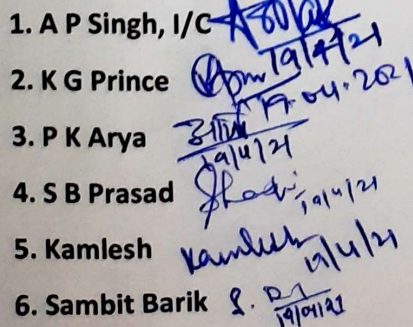 1. A P Singh, I/C 19/4/21
2. K G Prince 19.04.2021
3. P K Arya 19/4/21
4. S B Prasad 19/4/21
5. Kamlesh Kamlesh 19/4/21
6. Sambit Barik 19/04/21